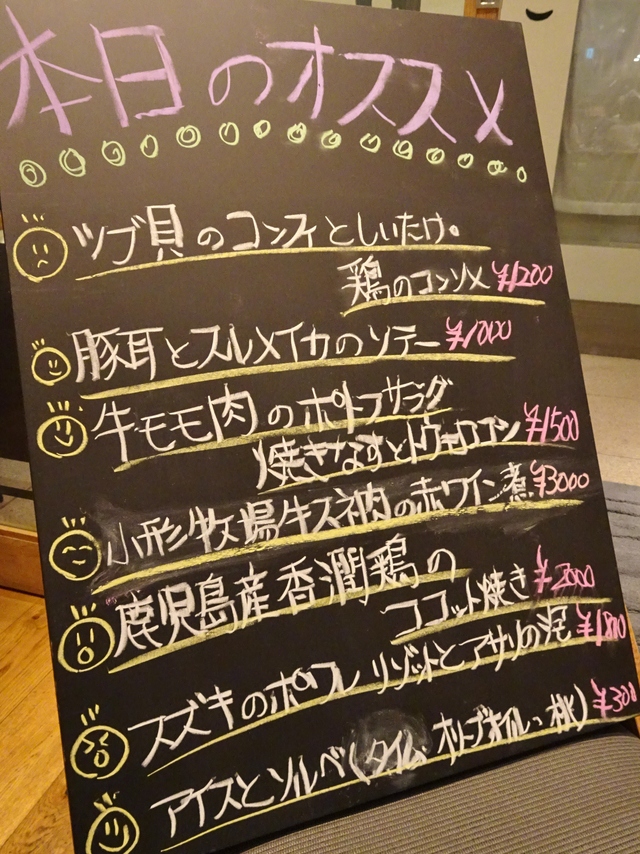 本日のオススメ
ツブ貝のコンフィとしいたけ。
鶏のコンソメ ¥1200
豚耳とスルメイカのソテー ¥1000
牛モモ肉のポトフサラダ
焼きなすとトウモロコシ ¥1500
小形牧場牛スネ肉の赤ワイン煮 ¥3000
鹿児島産香潤鶏の
ココット焼き ¥2000
スズキのポワレ リゾットとアサリの泡 ¥1800
アイスとソルベ(タイム、オリーブオイル、桃) ¥300